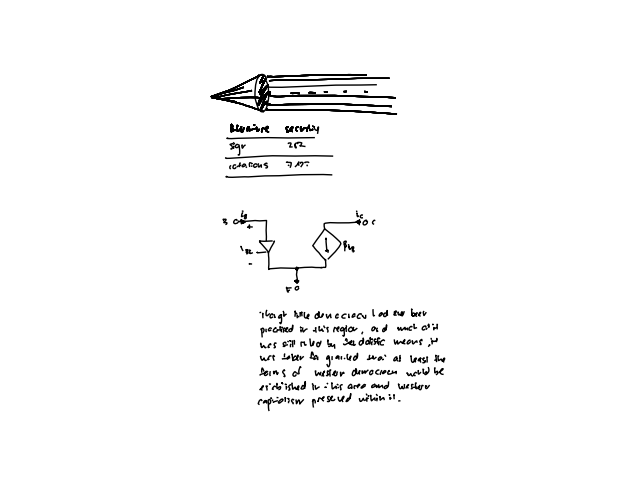 security
B i_B i_C C
+
-
E
Though little democracy had ever been
practiced in this region, and much of it
was still ruled by feudalistic means, it
was taken for granted that at least the
forms of western democracy would be
established in this area and western
capitalism preserved within it.